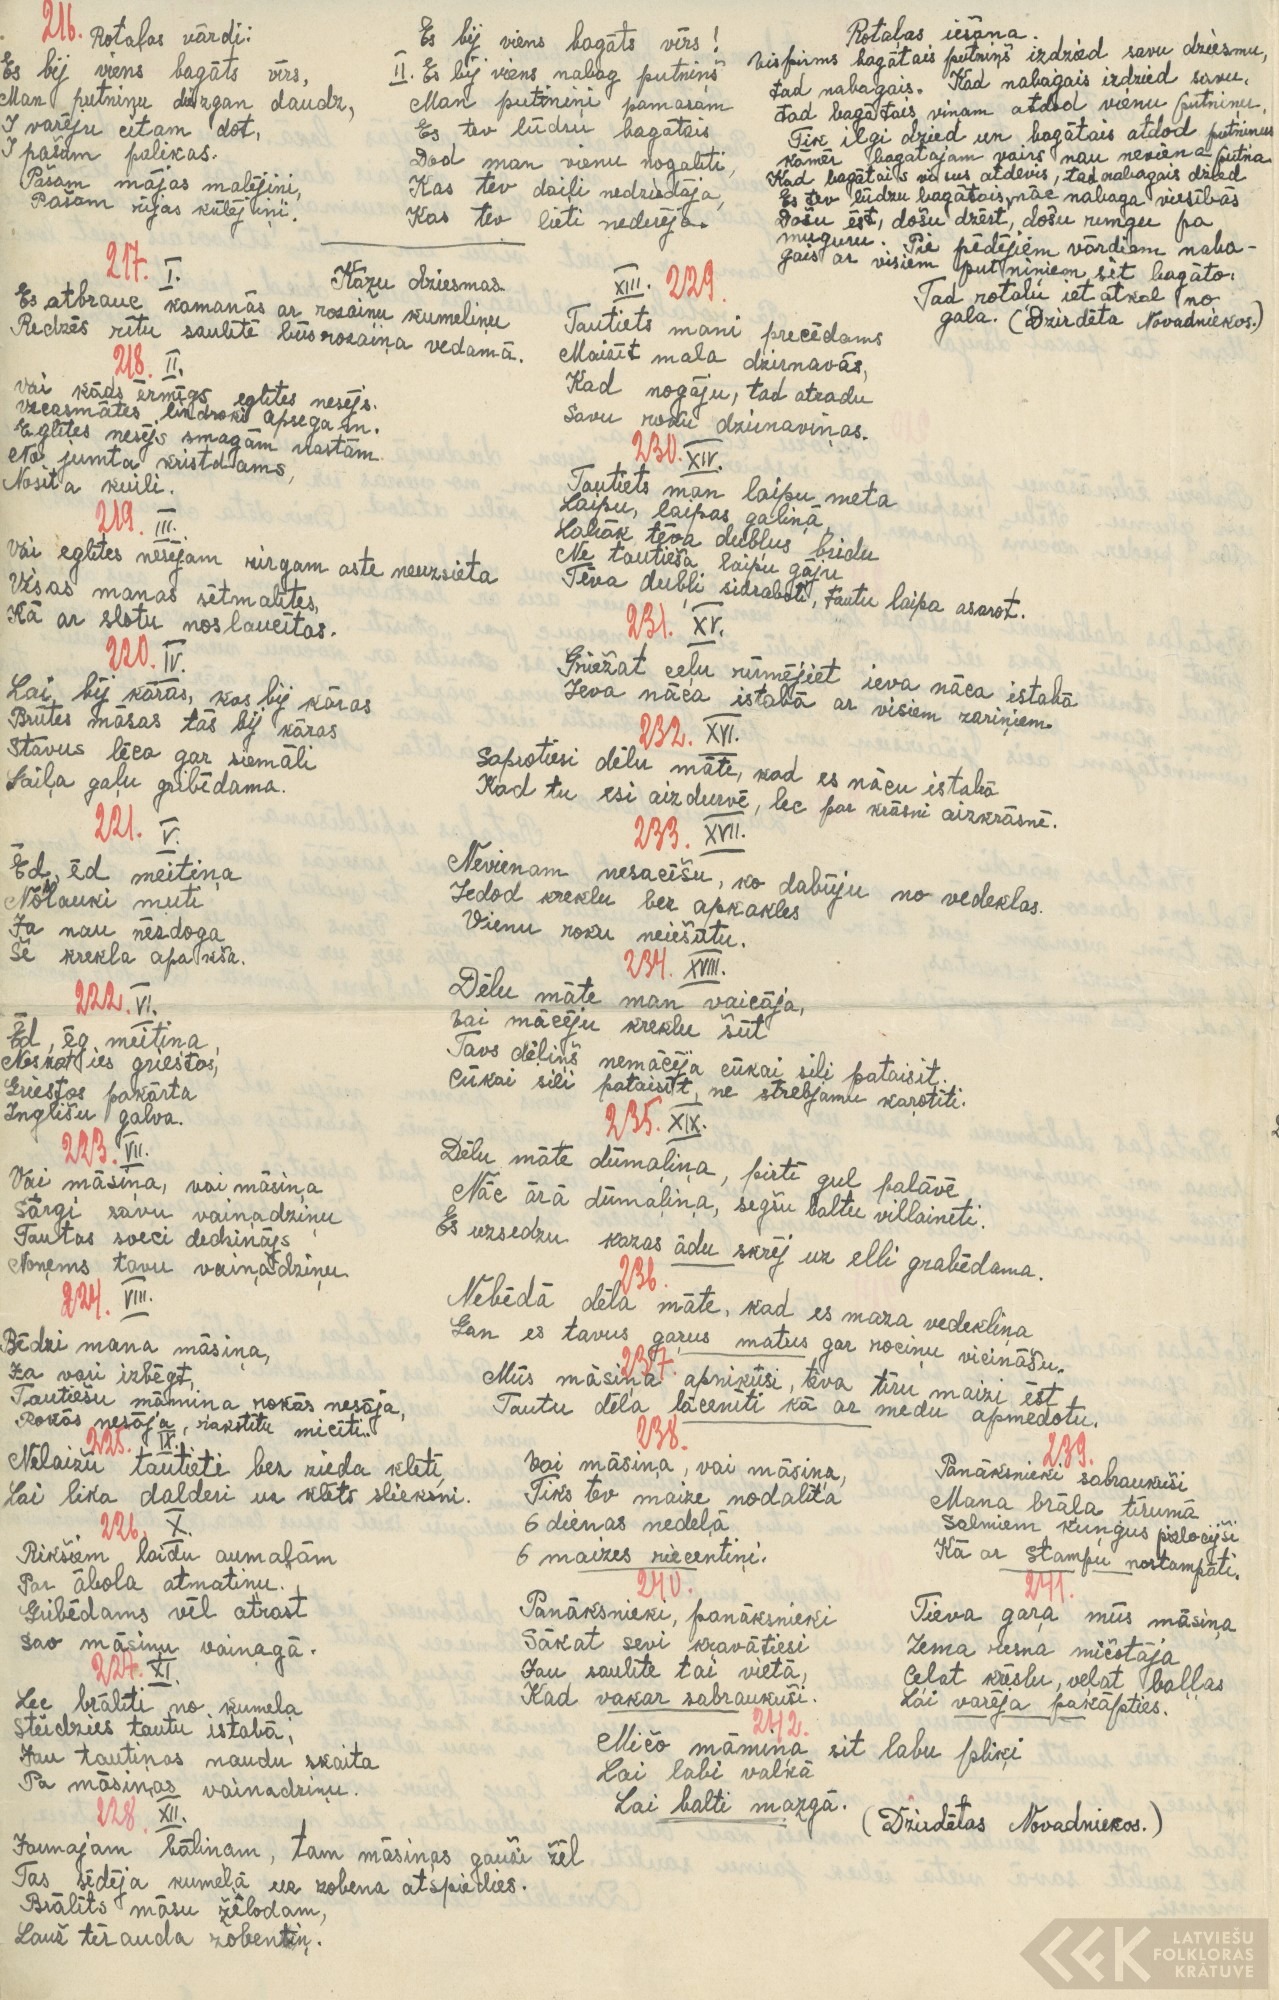 216. Rotaļas vārdi:
Es bij viens bagāts vīrs,
Man putniņu diezgan daudz,
I varēju citam dot,
I pašam palikas.
Pašam mājas malējiņi,
Pašam rijas kūlējiņi.
Es bij viens bagāts vīrs!
II. Es bij viens nabag putniņš
Man putniņi pamazām
Es tev lūdzu bagātais
Dod man vienu nogalīti,
Kas tev daiļi nedziedāja,
Kas tev lieti nederēja.
Rotaļas iešana.
Vispirms bagātais putniņš izdzied savu dziesmu,
tad nabagais. Kad nabagais izdzied savu,
tad bagātais viņam atdod vienu putniņu.
Tik ilgi dzied un bagātais atdod putniņus
kāmēr bagātajam vairs nau neviena putna
Kad bagātais visus atdevis, tad nabagais dzied
Es tev lūdzu bagātais, nāc nabaga viesībās
Došu ēst, došu dzēst, došu rungu pa
muguru. Pie pēdējiem vārdiem naba-
gais ar visiem putniņiem sit bagāto.
Tad rotaļu iet atkal no
gala. (Dzirdēta Novadniekos.)
Kāzu dziesmas.
217. I.
Es atbrauc kamanās ar rozaiņu kumeliņu
Redzēs rītu saulītē būs rozaiņa vedamā.
218. II.
Vai kāds ērmīgs eglītes nesējs.
Vecasmātes lindraki apsegam.
Eglītes nesējs smagām nastām
No jumta kristdams,
Nosita kuili.
219. III.
Vai eglītes nesējam zirgam aste neuzsieta
Visas manas sētmalītes,
Kā ar slotu noslaucītas.
220. IV.
Lai bij kāras, kas bij kāras
Brūtes māsas tās bij kāras
Stāvus lēca gar siemāli
Saiļa gaļu gribēdama.
221. V.
Ēd, ēd meitiņa
Nōslauki muti
Ja nau nēzdoga
Šē krekla apakša.
222. VI.
Ēd, ēd meitiņa,
Neskaties griestos,
Griestos pakārta
Inglišu galva.
223. VII.
Vai māsiņa, vai māsiņa
Sargi savu vaiņadziņu
Tautas sveci dedzinājs
Noņems tavu vaiņadziņu.
224. VIII.
Bēdzi mana māsiņa,
Ja vari izbēgt,
Tautiešu māmiņa rokās nesāja,
Rokās nesāja, rakstītu micīti.
225. IX.
Nelaižu tautieti bez zieda klētī,
Lai lika dalderi uz klēts slieksni.
226. X.
Rikšiem laidu aumaļām
Par ābola atmatiņu.
Gribēdams vēl atrast
Sao māsiņu vaiņagā.
227. XI.
Lec brālīti no kumeļa
Steidzies tautu istabā,
Jau tautiņas naudu skaita
Pa māsiņas vainadziņu.
228. XII.
Jaunajam bāliņam, tam māsiņas gauži žēl
Tas sēdēja kumeļā uz zobena atspiedies.
Brālīts māsu žēlodam,
Lauž tērauda zobentiņ.
XIII. 229.
Tautiets mani precēdams
Maisīt mala dzirnavās,
Kad nogāju, tad atradu
Savu roku dzirnaviņas.
230. XIV.
Tautiets man laipu meta
Laipu, laipas galiņā,
Labāk tēva dubļus bridu
Ne tautieša laipu gāju
Tēva dubļi sidraboti, tautu laipa asarot.
231. XV.
Griežat ceļu rūmējiet ieva nāca istabā
Ieva nāca istabā ar visiem zariņiem.
232. XVI.
Saprotiesi dēlu māte, kad es nācu istabā
Kad tu esi aizdurvē, lec par krāsni aizkrāsnē.
233. XVII.
Nevienam nesacīšu, ko dabūju no vedeklas.
Iedod kreklu bez apkakles
Vienu roku neiešūtu.
234. XVIII.
Dēlu māte man vaicāja,
Vai mācēju kreklu šūt
Tavs dēliņš nemācēja cūkai sili pataisīt.
Cūkai sili pataisīt, ne strebjamu karotīti.
235. XIX.
Dēlu māte dūmaļiņa, pirtī gul palāvē
Nāc ārā dūmaļiņa, segšu baltu villainīti.
Es uzsedzu kazas ādu skrēj uz elli grabēdama.
236.
Nebēdā dēla māte, kad es maza vedekliņa
Gan es tavus gaŗus matus gar rociņu vicināšu.
237.
Mūs māsiņa apnikusi, tēva tīru maizi ēst
Tautu dēla lāceniti kā ar medu apmedotu.
238.
Vai māsiņa, vai māsiņa,
Tiks tev maize nodalīta
6 dienas nedēļā
6 maizes riecentiņi.
239.
Panāksnieki sabraukuši
Mana brāļa tīrumā
Salmiem kuņģus pielocijši
Kā ar stampu nostampāti.
240.
Panāksnieki, panāksnieki
Sākat sevi kravātiesi
Jau saulīte tai vietā,
Kad vakar sabraukuši.
241.
Tieva gaŗa mūs māsiņa
Zema resna mičotāja
Celat krēslu, veļat baļļas
Lai varēja pakāpties.
242.
Mičo māmiņa sit labu pliķi
Lai labi valkā
Lai balti mazgā.
(Dzirdētas Novadniekos.)
LATVIEŠU
FOLKLORAS
KRĀTUVE